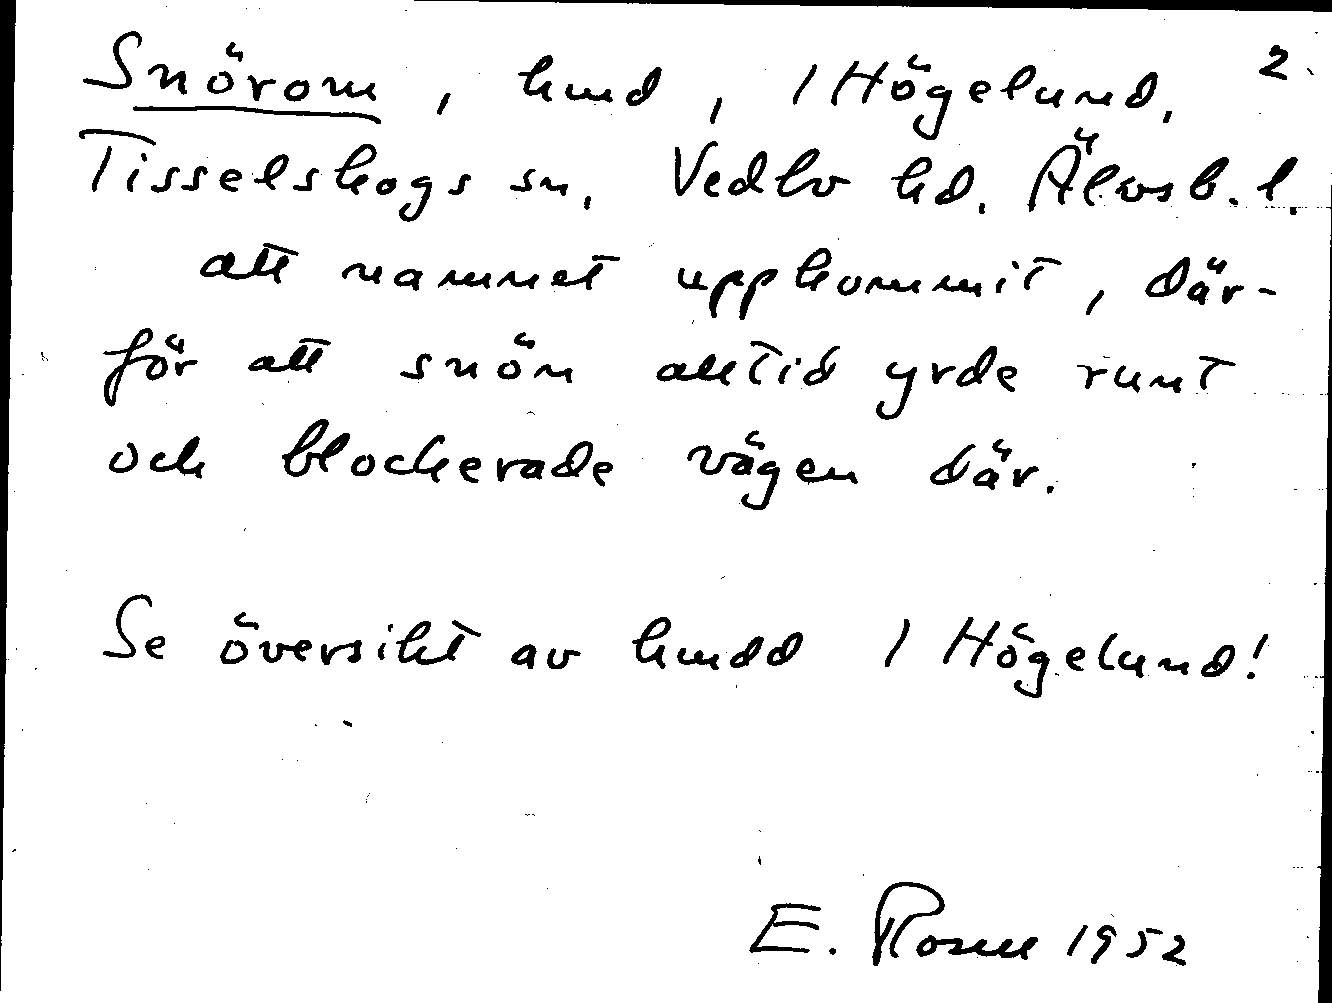 Snörom, hmd, 1 Högelund, 2.
Tisselskogs sn, Vedbo hd. Älvsb. l.
att namnet uppkommit, där-
för att snön alltid yrde runt
och blockerade vägen där.
Se översikt av hmdd 1 Högelund!
E. Rosell 1952